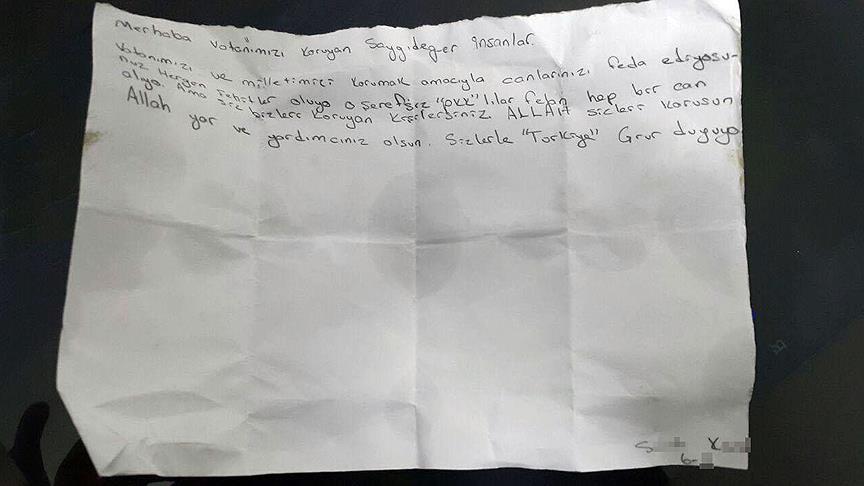 Merhaba Vatanımızı koruyan Saygıdeğer insanlar.
Vatanımızı ve milletimizi korumak amacıyla canlarınızı feda ediyosu-
nuz Hergün Şehitler oluyo o şerefsiz "PKK"lılar felan hep bir can
alıyo. Ama siz bizleri koruyan kişilersiniz ALLAH sizleri korusun
Allah yar ve yardımcınız olsun. Sizlerle "Türkiye" Grur duyuyo
S Y
6-